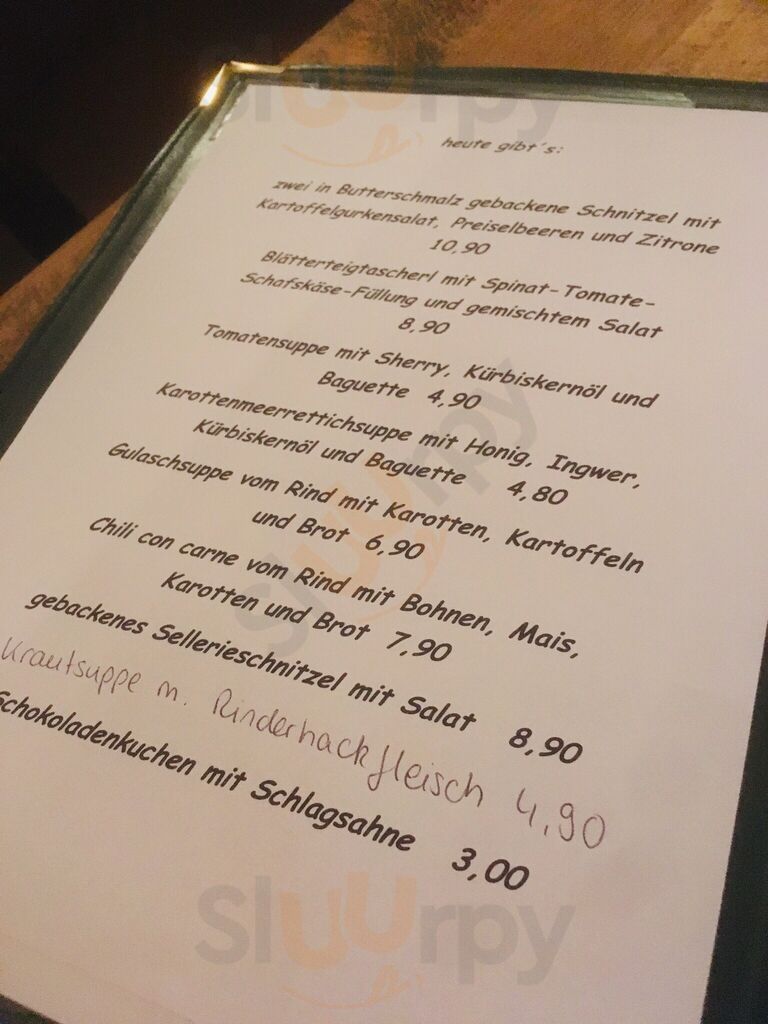 heute gibt's:
zwei in Butterschmalz gebackene Schnitzel mit
Kartoffelgurkensalat, Preiselbeeren und Zitrone
10,90
Blätterteigtascherl mit Spinat-Tomate-
Schafskäse-Füllung und gemischtem Salat
8,90
Tomatensuppe mit Sherry, Kürbiskernöl und
Baguette 4,90
Karottenmeerrettichsuppe mit Honig, Ingwer,
Kürbiskernöl und Baguette 4,80
Gulaschsuppe vom Rind mit Karotten, Kartoffeln
und Brot 6,90
Chili con carne vom Rind mit Bohnen, Mais,
Karotten und Brot 7,90
gebackenes Sellerieschnitzel mit Salat 8,90
Krautsuppe m. Rinderhackfleisch 4,90
Schokoladenkuchen mit Schlagsahne 3,00
sluurpy
sluurpy
sluurpy